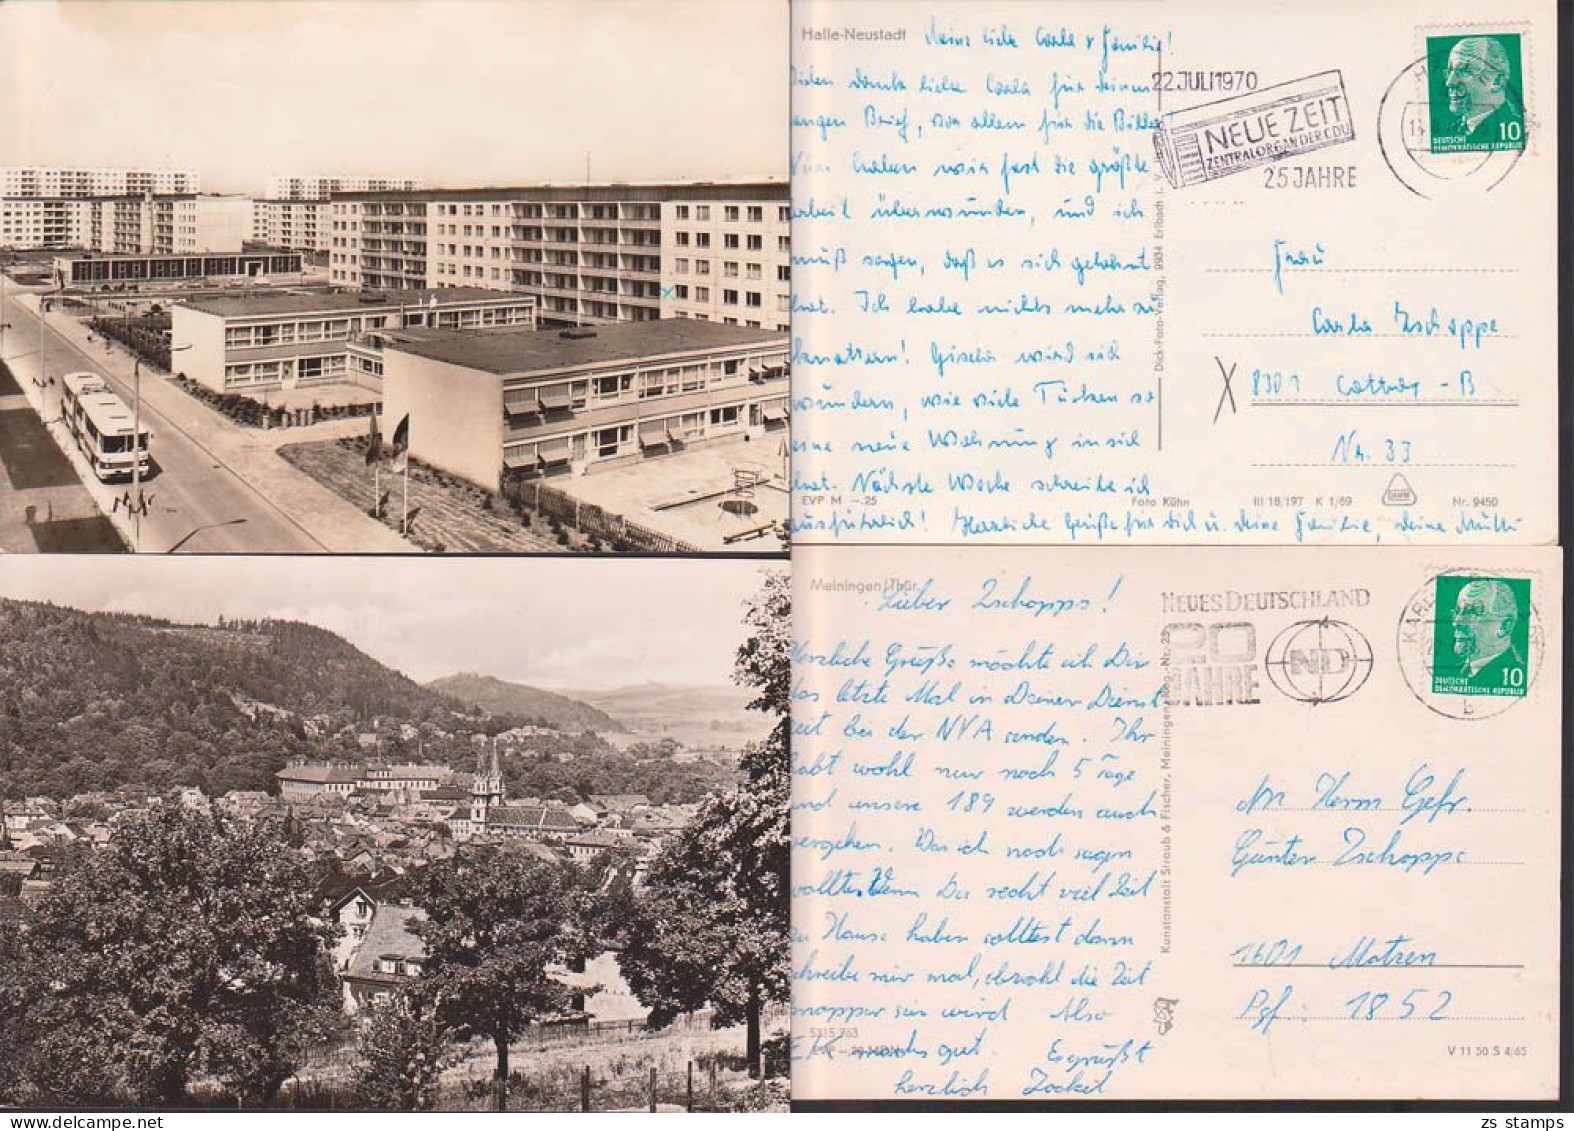 Halle-Neustadt
Meine liebe Carla & Familie!
Vielen Dank liebe Carla für deinen
langen Brief, vor allem für die Bilder!
Nun haben wir fast die größte
Arbeit überwunden, und ich
muß sagen, daß es sich gelohnt
hat. Ich habe nichts mehr zu
knattern! Gisela wird sich
wundern, wie viele Tücken so
eine neue Wohnung in sich
hat. Nächste Woche schreibe ich
ausführlich! Herzliche Grüße für Dich u. deine Familie, deine Mutti
22. JULI 1970
NEUE ZEIT
ZENTRALORGAN DER CDU
25 JAHRE
10
DEUTSCHE
DEMOKRATISCHE REPUBLIK
Frau
Carla Zschoppe
8301 Cotta - B
Nr. 33
Dick-Foto-Verlag, 9934 Erlbach i. V.
EVP M -.25
Foto Kühn
III/18/197 K 1/69
Nr. 9450
Meiningen/Thür.
Lieber Zschopps!
Herzliche Grüße möchte ich Dir
das letzte Mal in Deiner Dienst
zeit bei der NVA senden. Ihr
habt wohl nur noch 5 Tage
und unsere 189 werden auch
vergehen. Was ich noch sagen
wollte: Wenn Du recht viel Zeit
zu Hause haben solltest dann
schreibe mir mal, obwohl die Zeit
knapper sein wird. Also
EK machs gut. Es grüßt
herzlich Jockel
NEUES DEUTSCHLAND
20
JAHRE
ND
KARL
b
10
DEUTSCHE
DEMOKRATISCHE REPUBLIK
An Herrn Gefr.
Günter Zschoppe
1601 Matzen
Pgf.: 1852
Kunstanstalt Straub & Fischer, Meiningen
5315 763
EVP -.20 MDN
V 11 50 S 4/65
zs stamps